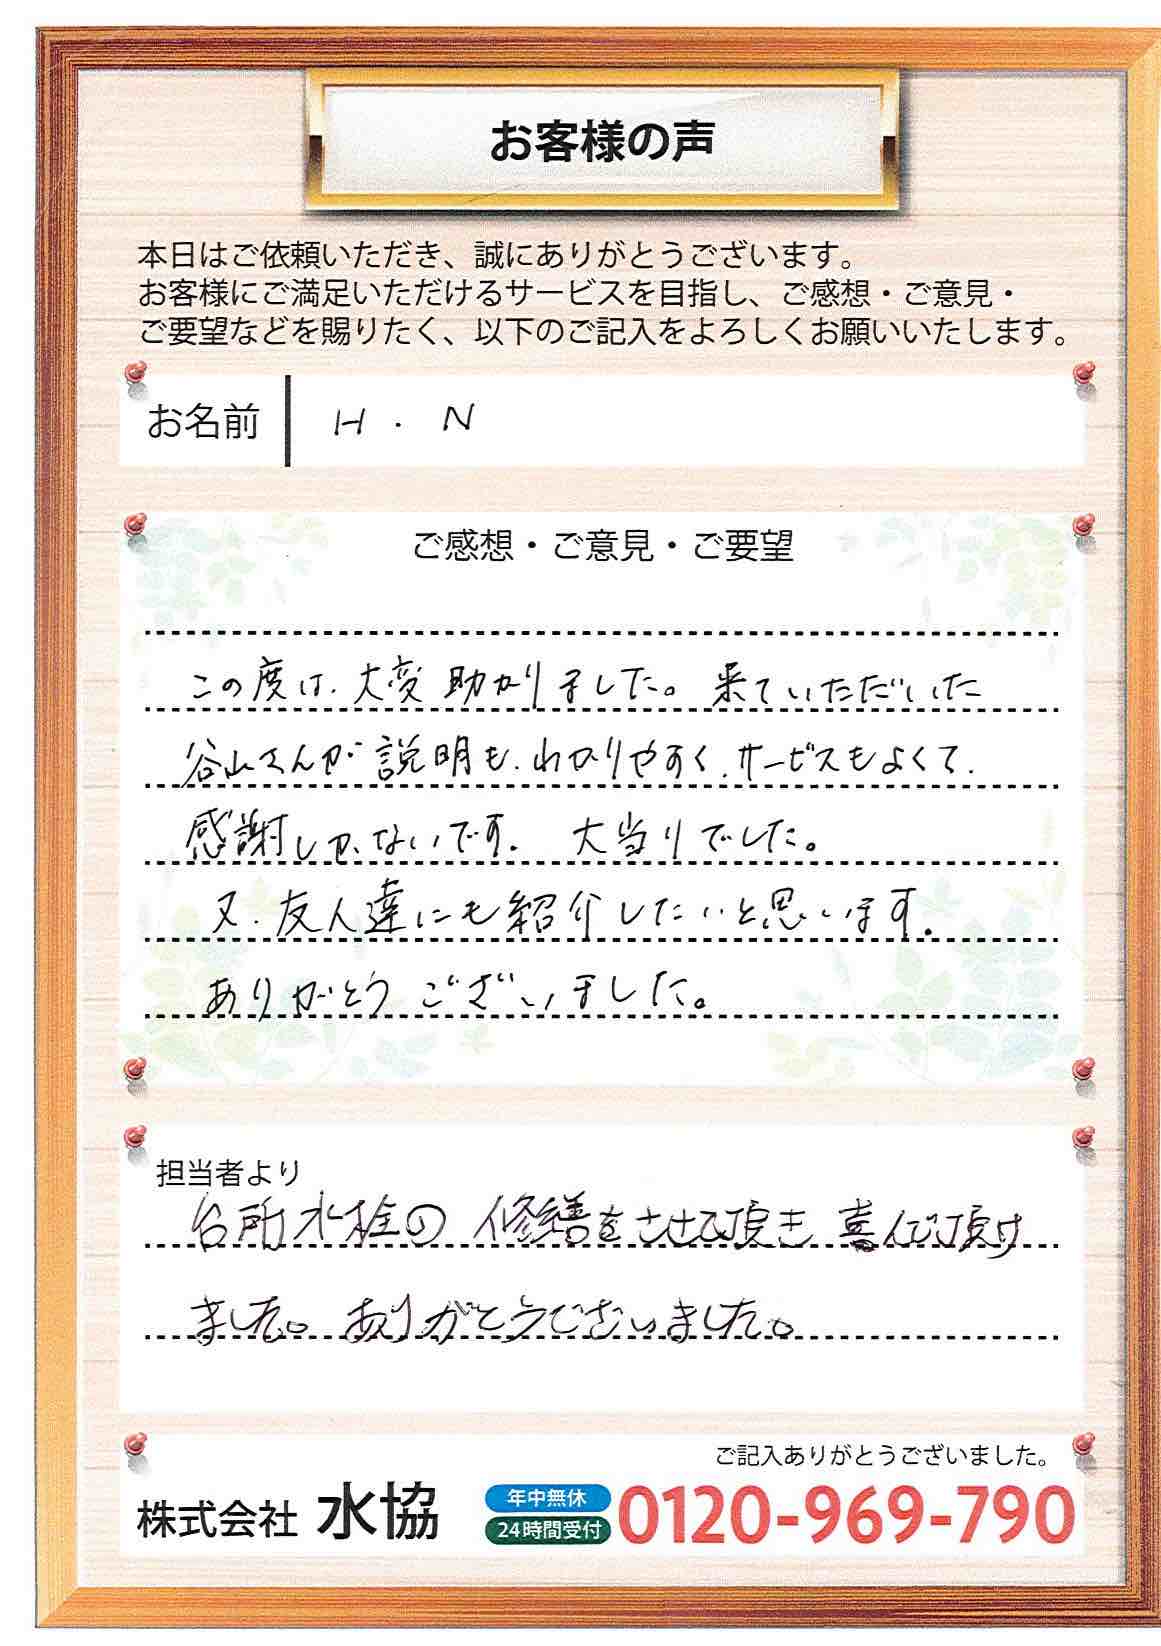 お客様の声
本日はご依頼いただき、誠にありがとうございます。
お客様にご満足いただけるサービスを目指し、ご感想・ご意見・
ご要望などを賜りたく、以下のご記入をよろしくお願いいたします。
お名前 H.N
ご感想・ご意見・ご要望
この度は、大変助かりました。来ていただいた
谷山さんが説明も、わかりやすく、サービスもよくて、
感謝しかないです。大当りでした。
又、友人達にも紹介したいと思います。
ありがとうございました。
担当者より
台所水栓の修繕をさせて頂き喜んで頂け
ました。ありがとうございました。
ご記入ありがとうございました。
株式会社 水協 年中無休 24時間受付 0120-969-790